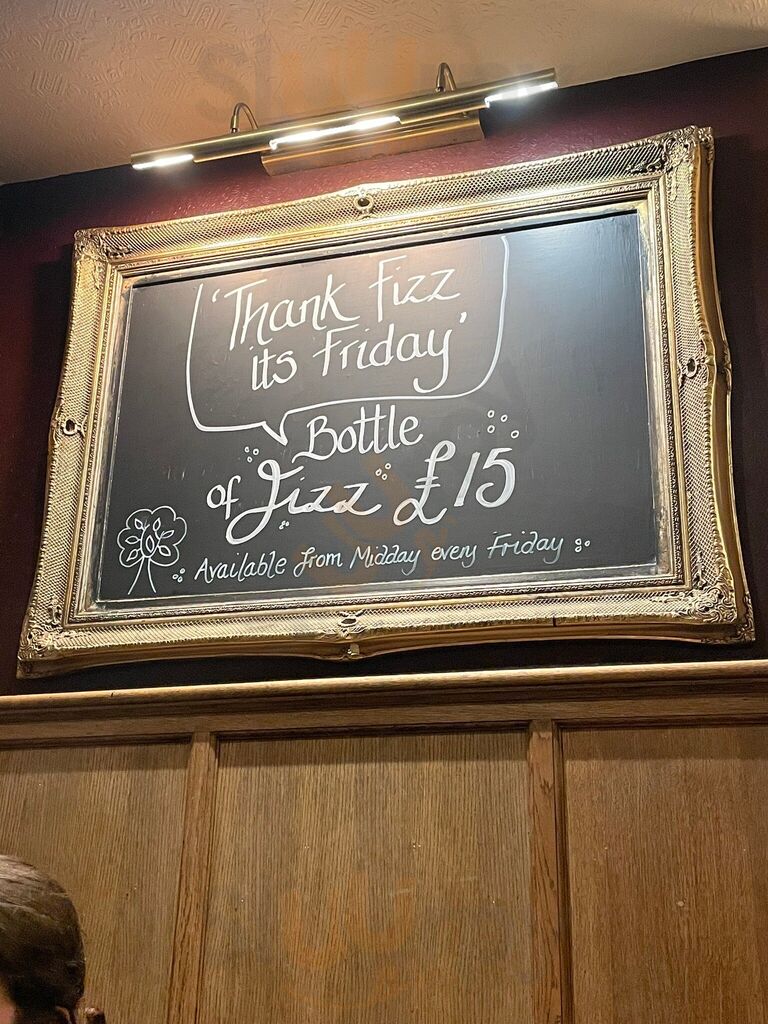 'Thank Fizz
its Friday'
Bottle
of Fizz £15
Available from Midday every Friday